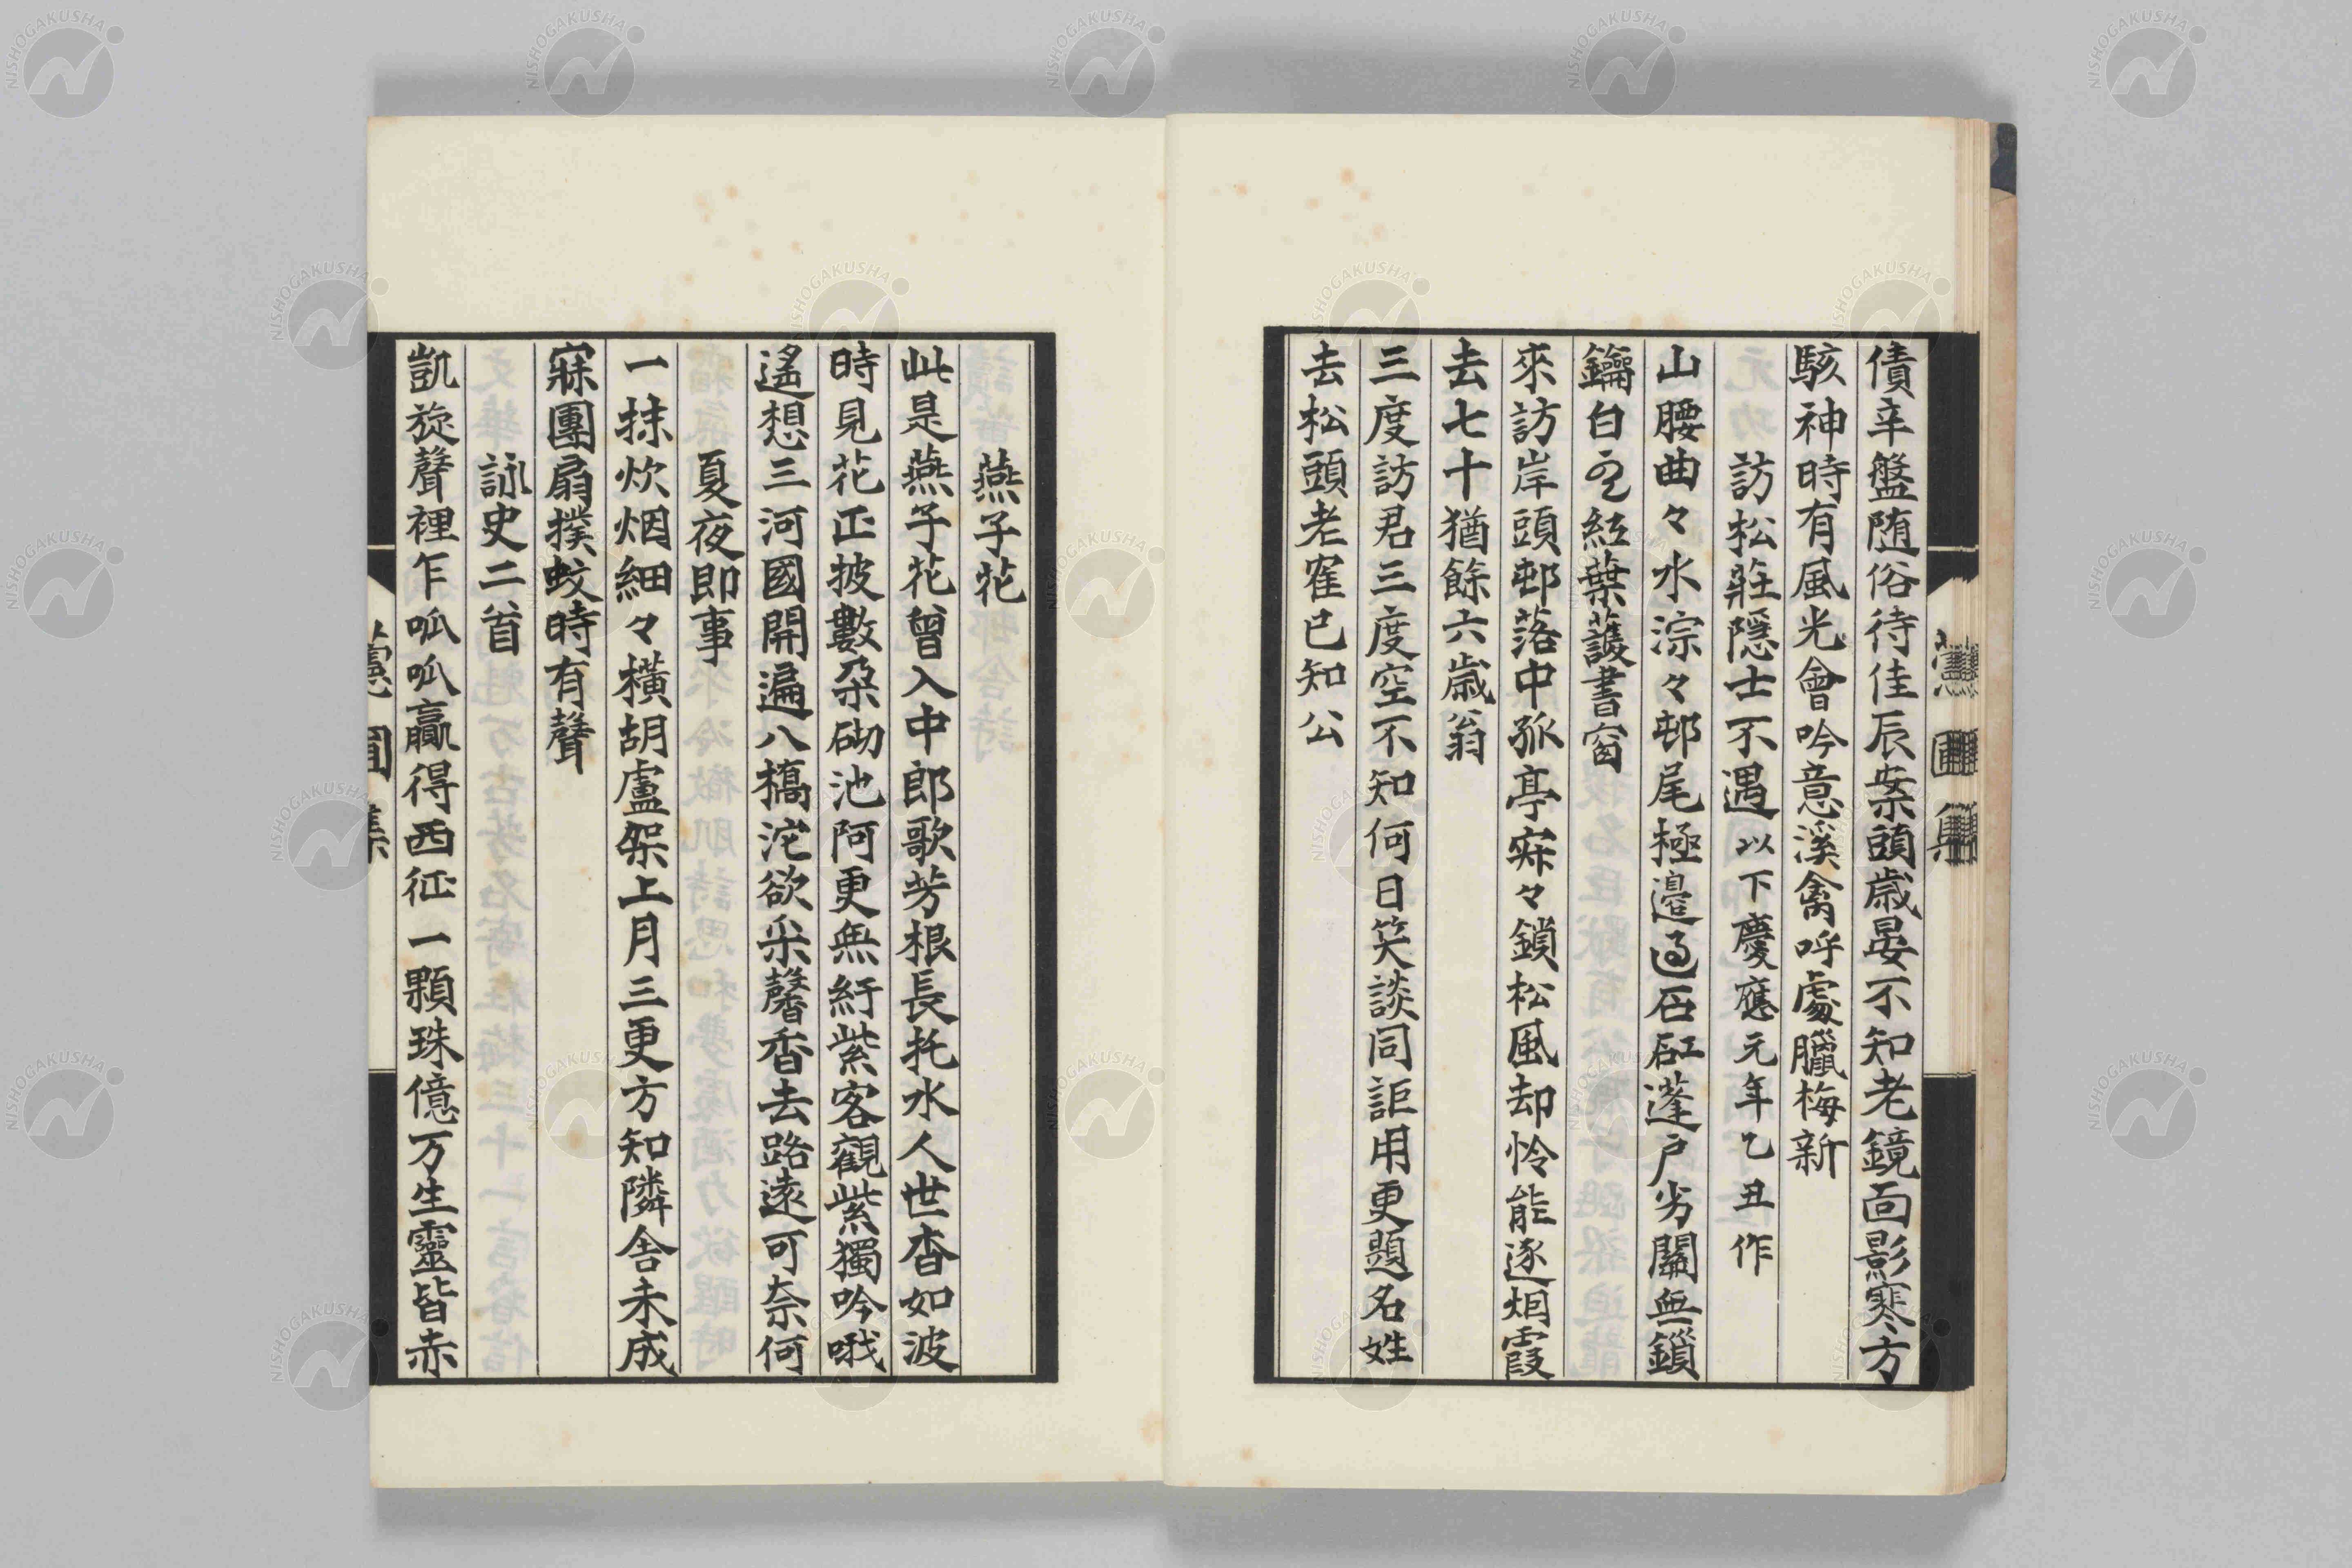 債辛盤随俗待佳辰案頭歳晏不知老鏡面影寒方
駭神時有風光會吟意溪禽呼處臘梅新
訪松莊隱士不遇以下慶應元年乙丑作
山腰曲々水淙々邨尾極邉過石矼蓬戸劣關無鎖
鑰白云紅葉護書窗
來訪岸頭邨落中孤亭寂々鎖松風却怜能逐烟霞
去七十猶餘六歳翁
三度訪君三度空不知何日笑談同詎用更題名姓
去松頭老寉已知公
燕子花
此是燕子花曾入中郎歌芳根長托水人世杳如波
時見花正披數朶砌池阿更無紆紫客觀紫獨吟哦
遙想三河國開遍八橋沱欲采馨香去路遠可奈何
夏夜即事
一抹炊烟細々橫胡盧架上月三更方知隣舍未成
寐團扇撲蚊時有聲
詠史二首
凱旋聲裡乍呱呱贏得西征一顆珠億万生靈皆赤